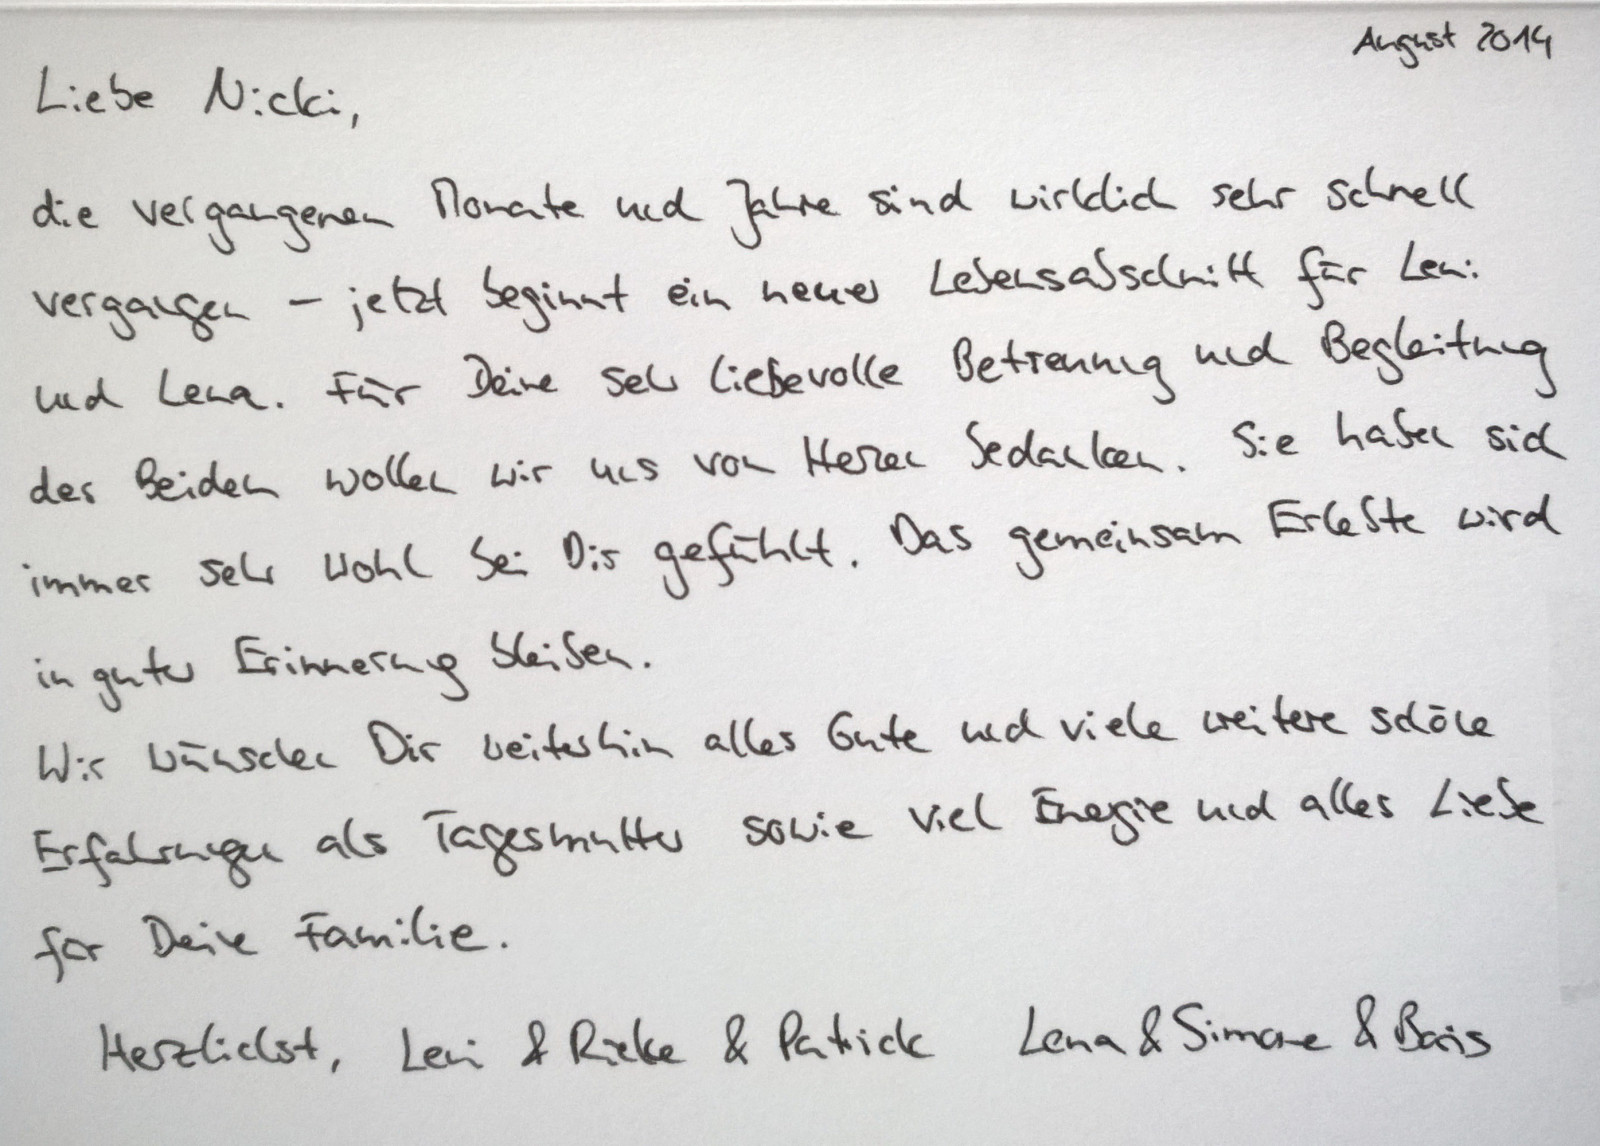 August 2014
Liebe Nicki,
die vergangenen Monate und Jahre sind wirklich sehr schnell
vergangen – jetzt beginnt ein neuer Lebensabschnitt für Leni
und Lena. Für Deine sehr liebevolle Betreuung und Begleitung
der Beiden wollen wir uns von Herzen bedanken. Sie haben sich
immer sehr wohl bei Dir gefühlt. Das gemeinsam Erlebte wird
in guter Erinnerung bleiben.
Wir wünschen Dir weiterhin alles Gute und viele weitere schöne
Erfahrungen als Tagesmutter sowie viel Energie und alles Liebe
für Deine Familie.
Herzlichst, Leni & Rieke & Patrick Lena & Simone & Boris